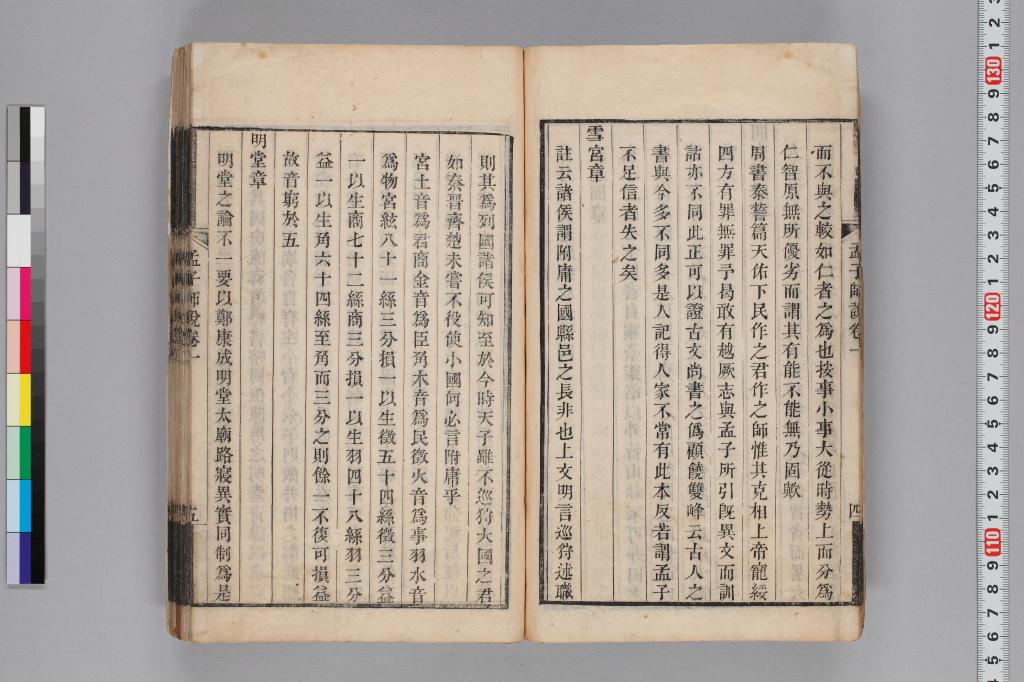 而不與之較如仁者之為也按事小事大從時勢上而分為
仁智原無所優劣而謂其有能不能無乃固歟
周書泰誓篇天佑下民作之君作之師惟其克相上帝寵綏
四方有罪無罪予曷敢有越厥志與孟子所引旣異文而訓
詁亦不同此正可以證古文尚書之偽顧饒雙峰云古人之
書與今多不同多是人記得人家不常有此本反若謂孟子
不足信者失之矣
雪宮章
註云諸侯謂附庸之國縣邑之長非也上文明言巡狩述職
孟子師說卷一
四
則其為列國諸侯可知至於今時天子雖不巡狩大國之君
如秦晉齊楚未嘗不役使小國何必言附庸乎
宮土音為君商金音為臣角木音為民徵火音為事羽水音
為物宮絃八十一絲三分損一以生徵五十四絲徵三分益
一以生商七十二絲商三分損一以生羽四十八絲羽三分
益一以生角六十四絲至角而三分之則餘一不復可損益
故音窮於五
明堂章
明堂之論不一要以鄭康成明堂太廟路寢異實同制為是
孟子師說卷一
五